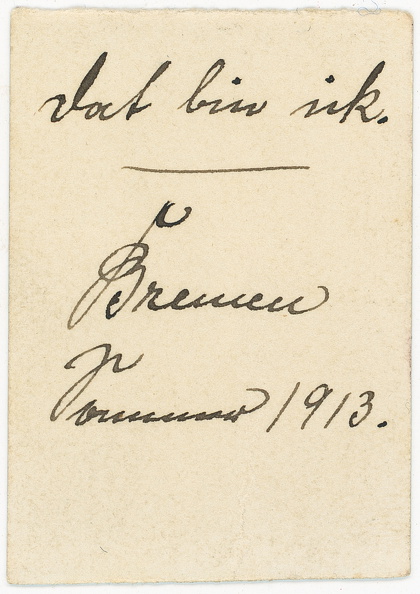 dat bin ik.
Bremen
Sommer 1913.